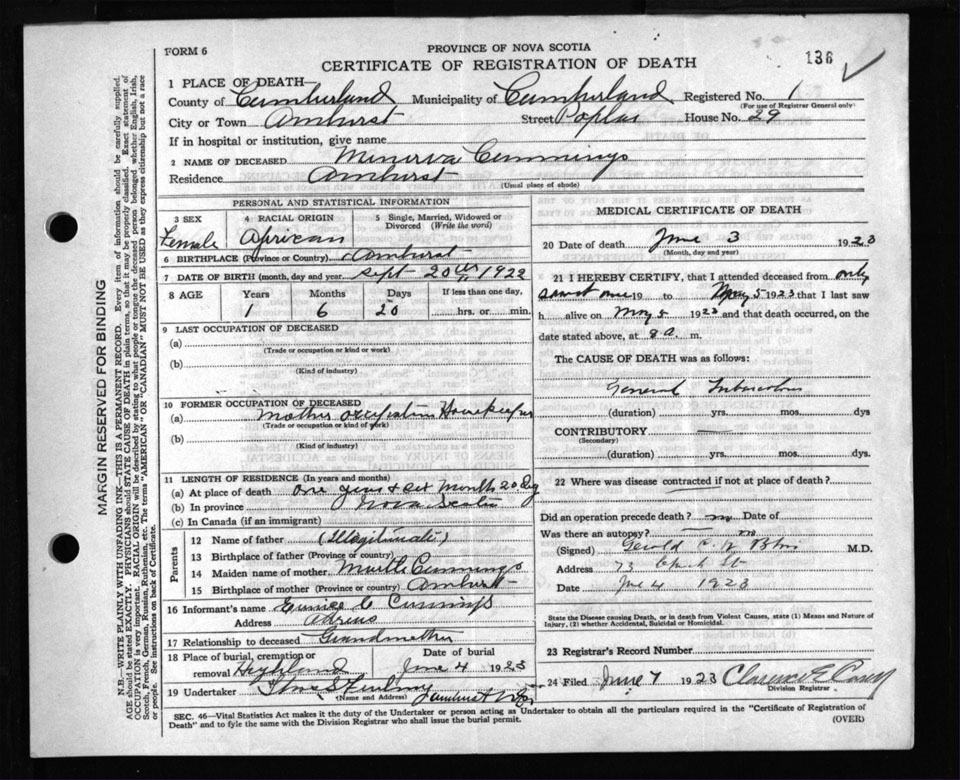 FORM 6
PROVINCE OF NOVA SCOTIA
CERTIFICATE OF REGISTRATION OF DEATH
138
1 PLACE OF DEATH
County of Cumberland Municipality of Cumberland Registered No. 1
(For use of Registrar General only)
City or Town Amherst Street Poplar House No. 29
If in hospital or institution, give name
2 NAME OF DECEASED Minerva Cummings
Residence Amherst
(Usual place of abode)
PERSONAL AND STATISTICAL INFORMATION
3 SEX Female
4 RACIAL ORIGIN African
5 Single, Married, Widowed or Divorced (Write the word)
6 BIRTHPLACE (Province or Country) Amherst
7 DATE OF BIRTH (month, day and year) Sept 20 1922
8 AGE Years Months Days If less than one day,
1 6 20 hrs. or min.
9 LAST OCCUPATION OF DECEASED
(a)
(Trade or occupation or kind or work)
(b)
(Kind of industry)
10 FORMER OCCUPATION OF DECEASED
(a) Mother occupation Housekeeper
(Trade or occupation or kind of work)
(b)
(Kind of industry)
11 LENGTH OF RESIDENCE (In years and months)
(a) At place of death one year & six months 20 Day
(b) In province Nova Scotia
(c) In Canada (if an immigrant)
Parents
12 Name of father (Illegitimate)
13 Birthplace of father (Province or country)
14 Maiden name of mother Cummings
15 Birthplace of mother (Province or country) Amherst
16 Informant's name Eunice C Cummings
Address
17 Relationship to deceased Grandmother
18 Place of burial, cremation or removal Highland
Date of burial June 4 1923
19 Undertaker Amherst N.S.
(Name and Address)
MEDICAL CERTIFICATE OF DEATH
20 Date of death June 3 1923
(Month, day and year)
21 I HEREBY CERTIFY, that I attended deceased from only
once 19 to May 5 1923 that I last saw
h alive on May 5 1923 and that death occurred, on
date stated above, at 8 a. m.
The CAUSE OF DEATH was as follows:
General Tuberculosis
(duration) yrs. mos. dys
CONTRIBUTORY
(Secondary)
(duration) yrs. mos. dys.
22 Where was disease contracted if not at place of death?
Did an operation precede death? no Date of
Was there an autopsy? no
(Signed) Gerald C. W. M.D.
Address 73 St
Date June 4 1923
State the Disease causing Death, or in death from Violent Causes, state (1) Means and Nature of
Injury, (2) whether Accidental, Suicidal or Homicidal.
23 Registrar's Record Number
24 Filed June 7 1923 Clarence E Casey
Division Registrar
SEC. 46—Vital Statistics Act makes it the duty of the Undertaker or person acting as Undertaker to obtain all the particulars required in the "Certificate of Registration of
Death" and to fyle the same with the Division Registrar who shall issue the burial permit.
(OVER)
MARGIN RESERVED FOR BINDING
N.B.—WRITE PLAINLY WITH UNFADING INK—THIS IS A PERMANENT RECORD. Every item of information should be carefully supplied.
AGE should be stated EXACTLY. PHYSICIANS should STATE CAUSE OF DEATH in plain terms, so that it may be properly classified. Exact statement of
OCCUPATION is very important. RACIAL ORIGIN will be described by stating to what people or tongue the deceased person belonged whether English, Irish,
Scotch, French, German, Russian, Ruthenian, etc. The terms "AMERICAN" OR "CANADIAN" MUST NOT BE USED as they express citizenship but not a race
or people. See instructions on back of Certificate.